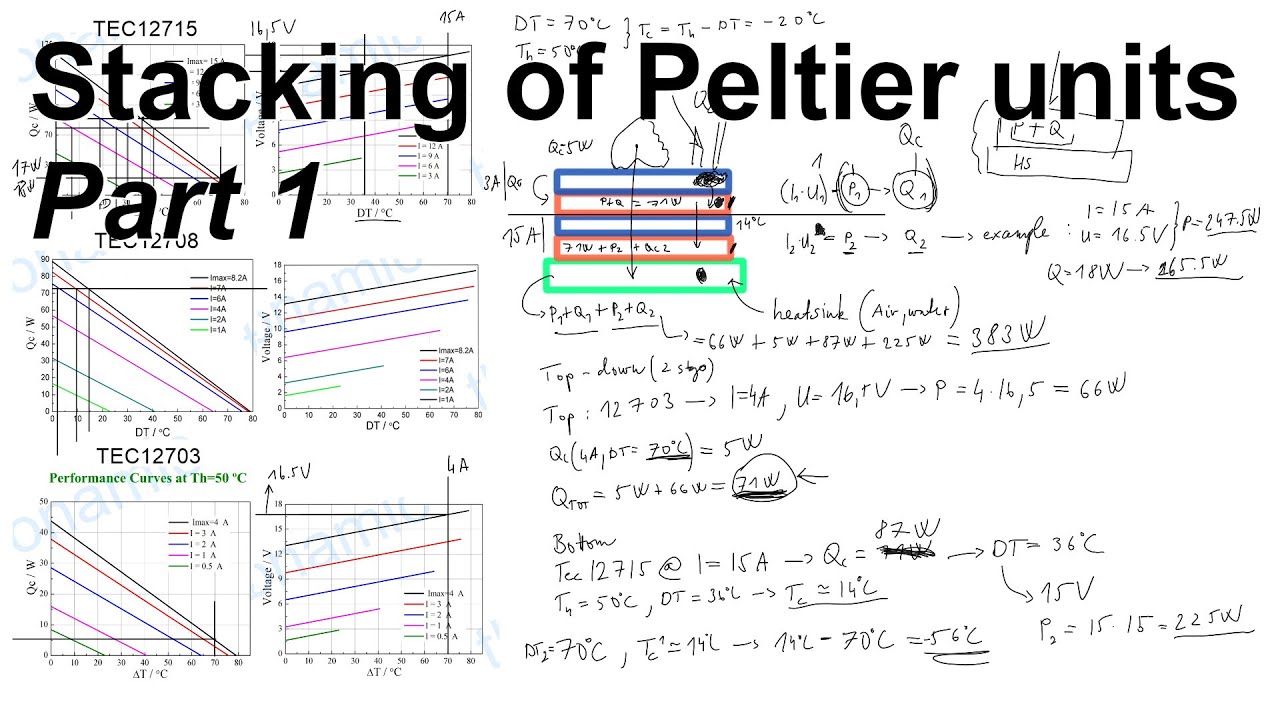 Stacking of Peltier units
Part 1
TEC12715
16,5V
15A
Imax= 15 A
I = 12 A
I = 9 A
I = 6 A
I = 3 A
Qc / W
70
17W
Voltage / V
DT / °C
TEC12708
Imax=8.2A
I=7A
I=6A
I=4A
I=2A
I=1A
Qc / W
90
80
70
60
50
40
30
20
10
0
0 10 20 30 40 50 60 70 80
DT / °C
Voltage / V
18
16
14
12
10
8
6
4
2
0
Imax=8.2A
I=7A
I=6A
I=4A
I=2A
I=1A
0 10 20 30 40 50 60 70 80
DT / °C
TEC12703
Performance Curves at Th=50 °C
16.5V
4A
Qc / W
50
40
30
20
10
0
Imax=4 A
I = 3 A
I = 2 A
I = 1 A
I = 0.5 A
0 10 20 30 40 50 60 70 80
ΔT / °C
Voltage / V
18
15
12
9
6
3
0
Imax=4 A
I = 3 A
I = 2 A
I = 1 A
I = 0.5 A
0 10 20 30 40 50 60 70 80
ΔT / °C
DT = 70°C
Th = 50°C
Tc = Th - DT = -20°C
Qc=5W
3A
P+Q = 71W
15A
14°C
71W + P2 + Qc2
(I1·U1) = P1 → Q1
Qc
P+Q
HS
I2·U2 = P2 → Q2 → example :
I = 15 A
U = 16.5V
P = 247.5W
Q = 18W → 265.5W
heatsink (Air, water)
P1+Q1 + P2+Q2
= 66W + 5W + 87W + 225W = 383W
Top-down (2 stgs)
Top : 12703 → I=4A, U= 16,5V → P = 4·16,5 = 66W
Qc (4A, DT= 70°C) = 5W
QTOT = 5W+66W = 71W
Bottom
87W
Tec 12715 @ I = 15A → Qc = 71W → DT = 36°C
Th = 50°C, DT = 36°C → Tc ≃ 14°C
15V
P2 = 15·15 = 225W
DT2 = 70°C, Tc1 ≃ 14°C → 14°C - 70°C = -56°C